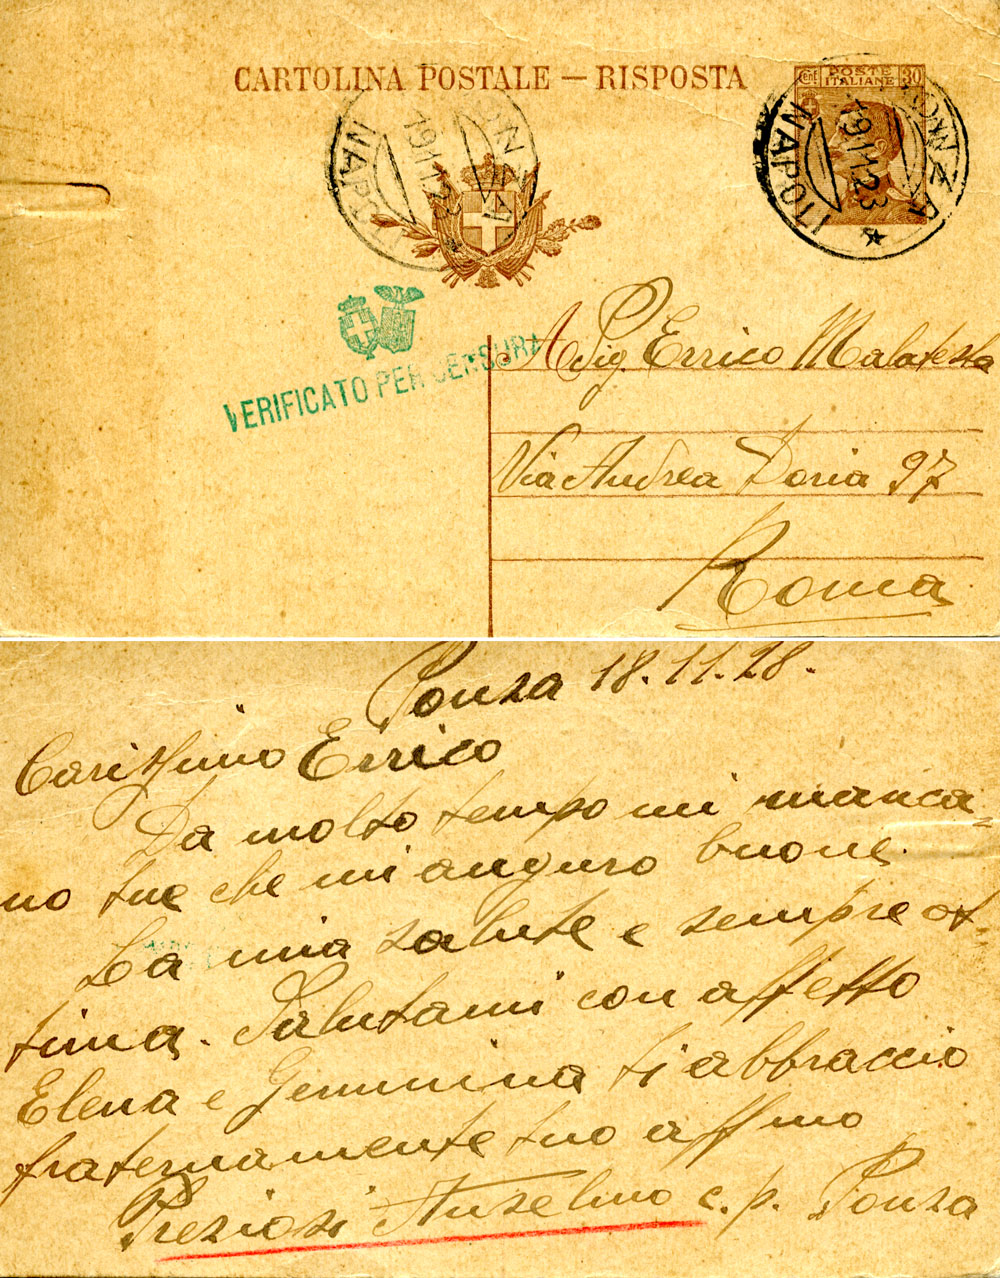 CARTOLINA POSTALE — RISPOSTA
Cent POSTE ITALIANE 30
PONZA
19.11.28
NAPOLI
PONZA
19.11.28
NAPOLI
VERIFICATO PER CENSURA
A Sig. Errico Malatesta
Via Andrea Doria 97
Roma
Ponza 18.11.28.
Carissimo Errico
Da molto tempo mi manca-
no tue che mi auguro buone.
La mia salute e sempre ot-
tima. Salutami con affetto
Elena e Gemmina ti abbraccio
fraternamente tuo affmo
Preziosi Anselmo c.p. Ponza